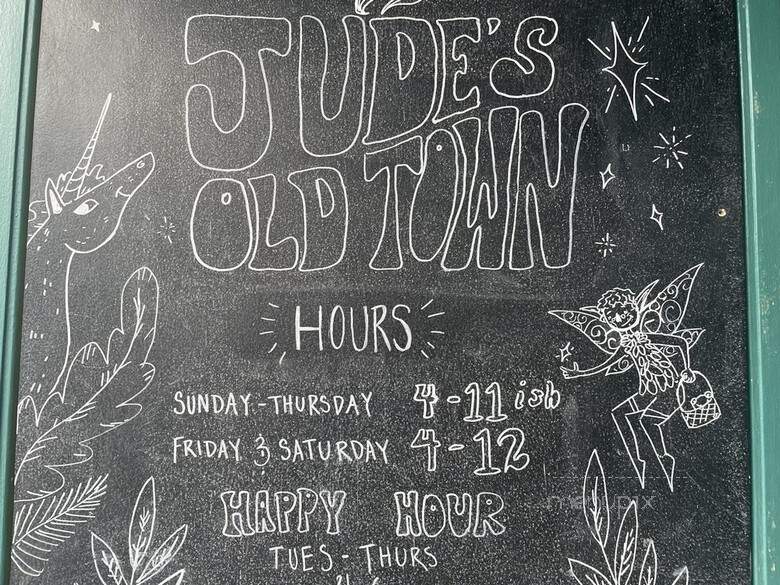 JUDE'S
OLD TOWN
HOURS
SUNDAY-THURSDAY 4-11ish
FRIDAY & SATURDAY 4-12
HAPPY HOUR
TUES-THURS
menupix